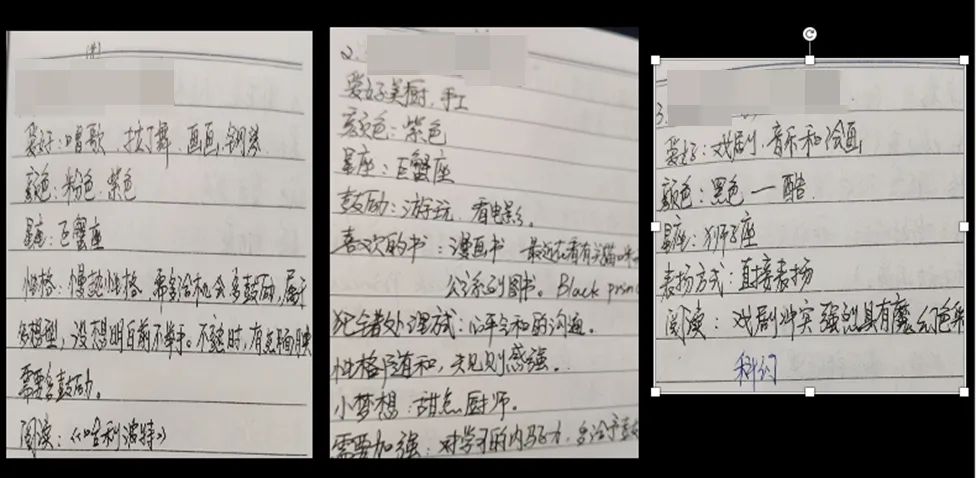 爱好:唱歌 拉丁舞、画画、钢琴
颜色:粉色、紫色
星座:巨蟹座
性格:慢熟性格,希多给机会多鼓励,属于
多想型,没想明白前不举手。不
需要多鼓励。
阅读:《哈利波特》
2.
爱好美厨,手工
颜色:紫色
星座:巨蟹座
鼓励:游玩、看电影。
喜欢的书:漫画书 最近在看有关猫咪
公系列图书。Black prin
犯错者处理方式:心平气和的沟通。
性格随和,规则感强。
小梦想:甜点厨师。
需要加强:对学习的内驱力,多给予鼓
3.
爱好:戏剧,音乐和绘画
颜色:黑色 一 酷
星座:狮子座
表扬方式:直接表扬
阅读:戏剧冲突强烈具有魔幻色彩
科幻